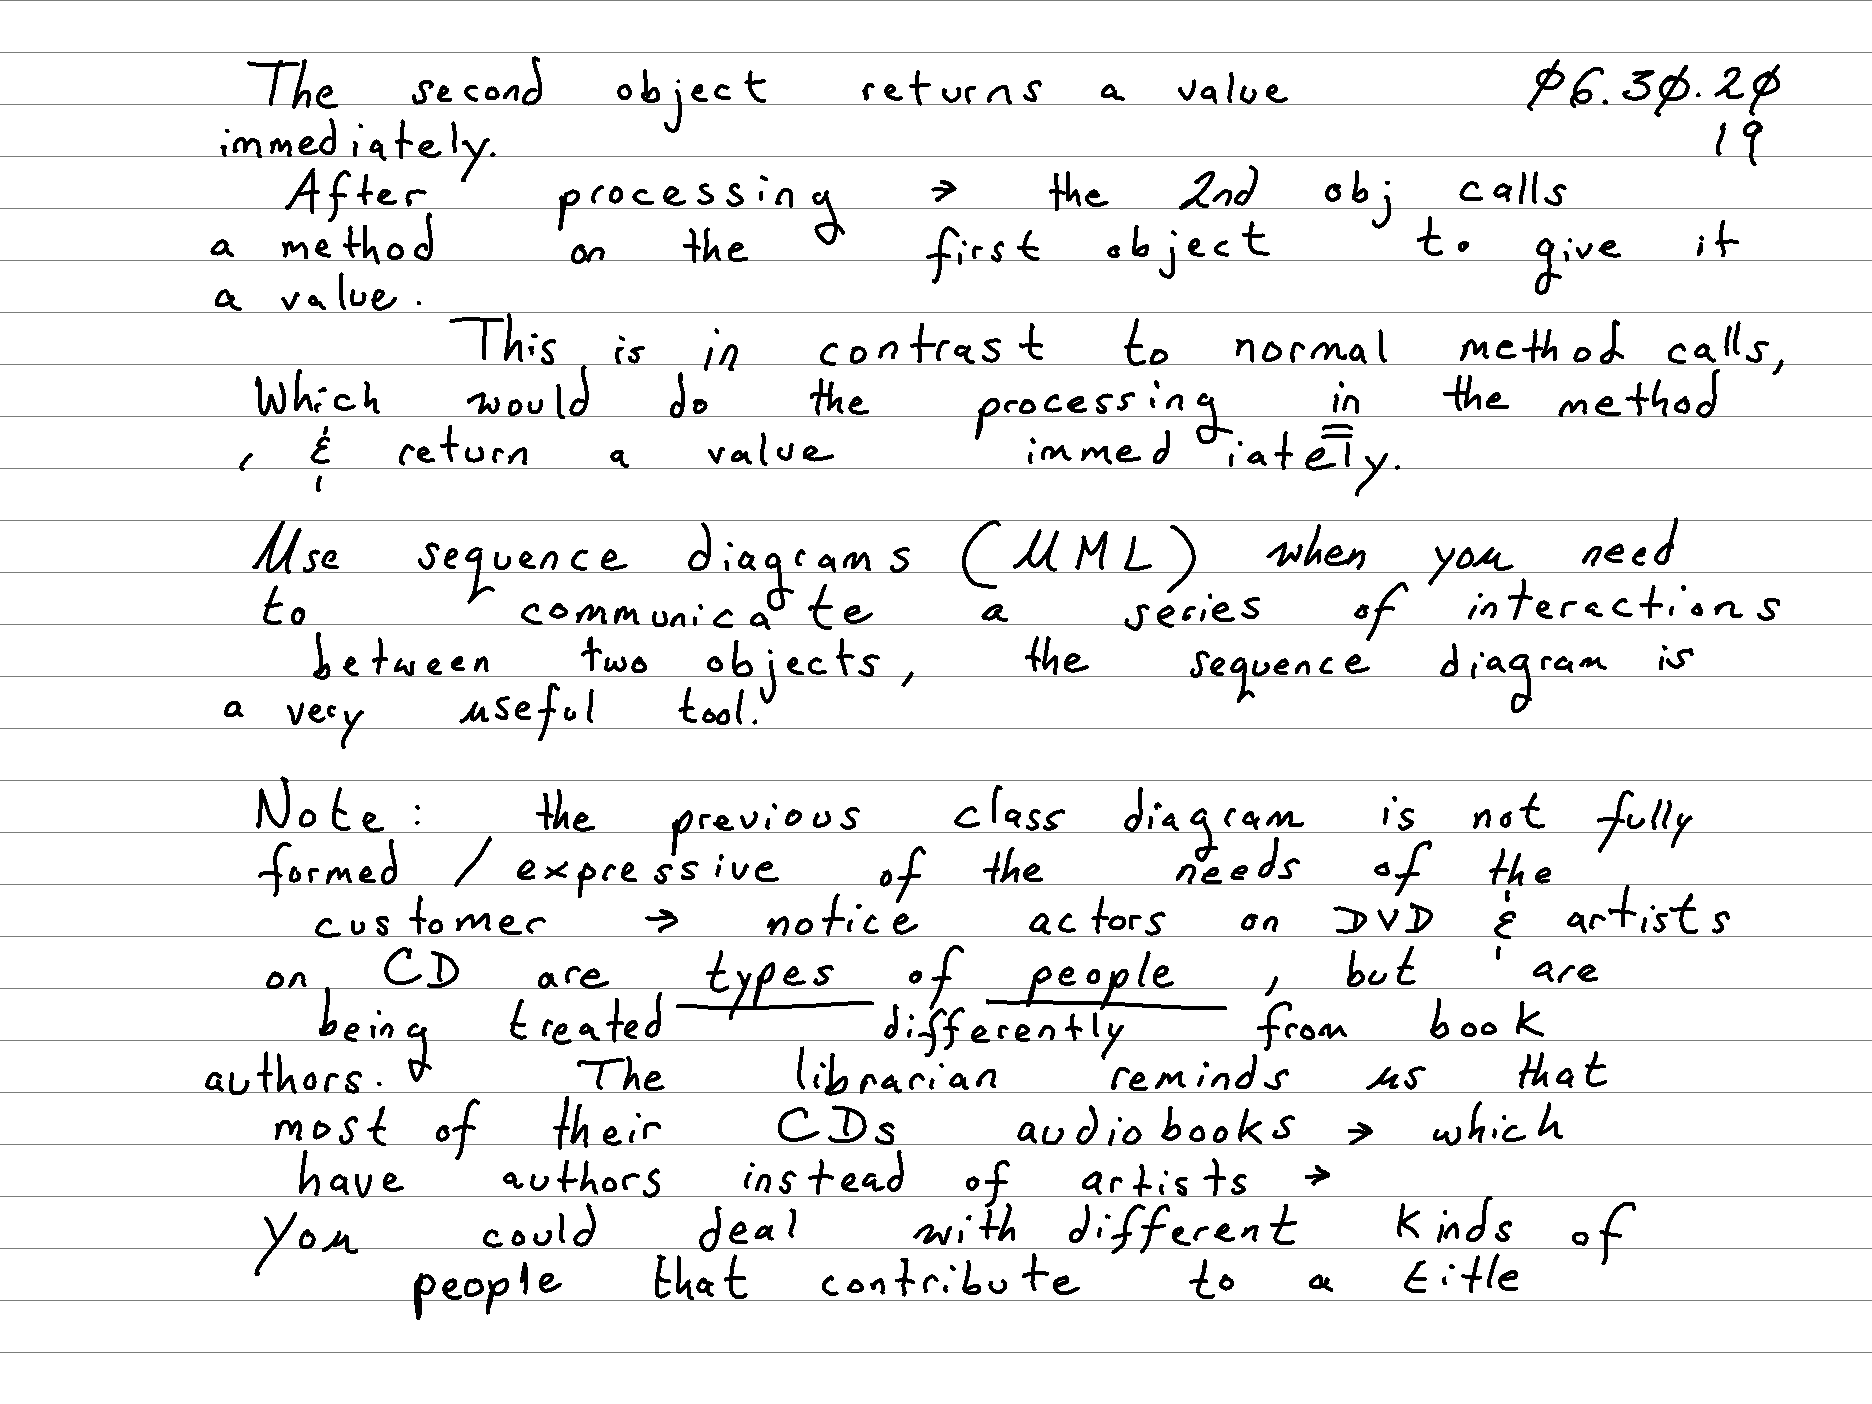 The second object returns a value 06.30.20
immediately. 19
After processing → the 2nd obj calls
a method on the first object to give it
a value.
This is in contrast to normal method calls,
Which would do the processing in the method
, & return a value immediately.
Use sequence diagrams (UML) when you need
to communicate a series of interactions
between two objects, the sequence diagram is
a very useful tool.
Note: the previous class diagram is not fully
formed / expressive of the needs of the
customer → notice actors on DVD & artists
on CD are types of people, but are
being treated differently from book
authors. The librarian reminds us that
most of their CDs audiobooks → which
have authors instead of artists →
You could deal with different kinds of
people that contribute to a title